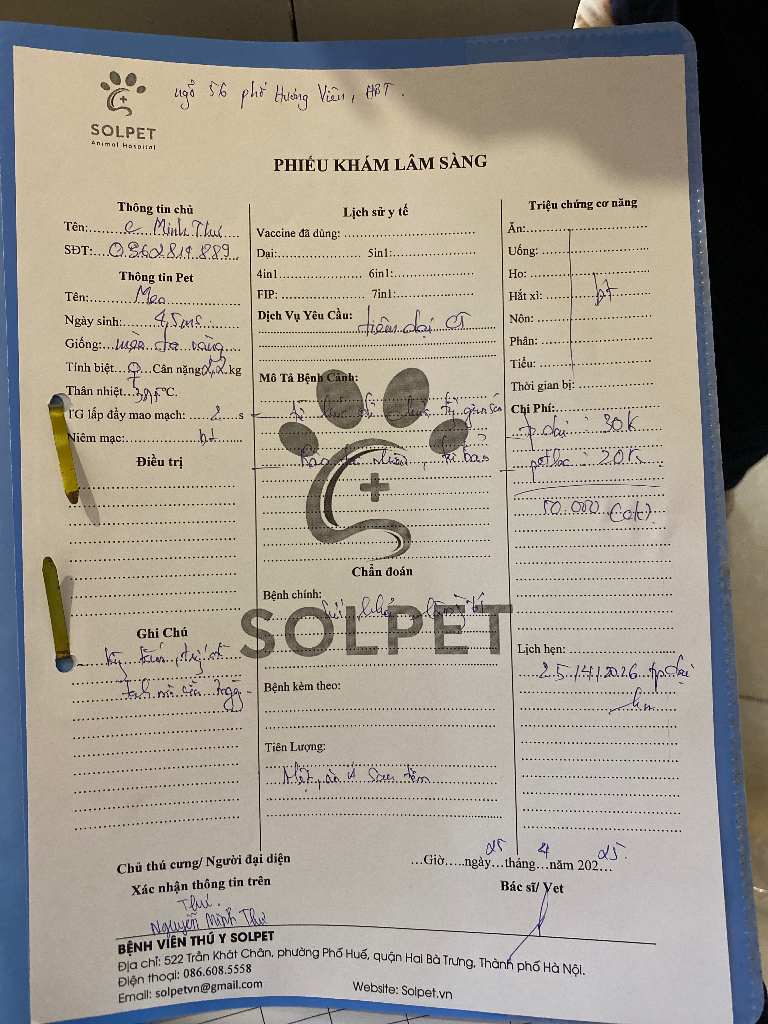 ngõ 56 phố Hương Viên, HBT.
SOLPET
Animal Hospital
PHIẾU KHÁM LÂM SÀNG
Thông tin chủ
Tên: c Minh Thư
SĐT: 0962819889
Thông tin Pet
Tên: Meo
Ngày sinh: 4,5ms
Giống: mèo ta vàng
Tính biệt ♀ Cân nặng 2,2 kg
Thân nhiệt 38,5 °C.
TG lấp đầy mao mạch: 2 s
Niêm mạc: bt
Điều trị
Ghi Chú
Lịch sử y tế
Vaccine đã dùng:
Dại: 5in1:
4in1 6in1:
FIP: 7in1:
Dịch Vụ Yêu Cầu: tiêm dại CT
Mô Tả Bệnh Cảnh:
SOLPET
Chẩn đoán
Bệnh chính:
Bệnh kèm theo:
Tiên Lượng:
Mệt, ăn ít sau tiêm
Triệu chứng cơ năng
Ăn:
Uống:
Ho:
Hắt xì: bt
Nôn:
Phân:
Tiểu:
Thời gian bị:
Chi Phí:
p.dại : 30K
: 20K
50.000 (ck)
Lịch hẹn:
25/4/2026 tp.dại
...Giờ.....ngày 25 tháng 4 năm 202 25.
Chủ thú cưng/ Người đại diện
Xác nhận thông tin trên
Bác sĩ/ Vet
Thư.
Nguyễn Minh Thư
BỆNH VIÊN THÚ Y SOLPET
Địa chỉ: 522 Trần Khát Chân, phường Phố Huế, quận Hai Bà Trưng, Thành phố Hà Nội.
Điện thoại: 086.608.5558
Email: solpetvn@gmail.com Website: Solpet.vn